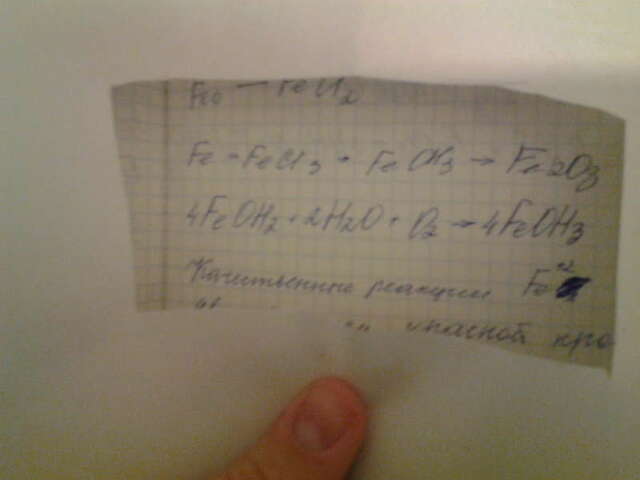 FeO - FeCl2
Fe - FeCl3 - FeOH3 → Fe2O3
4FeOH2 + 2H2O + O2 → 4FeOH3
Качественные реакции Fe+2
красной кро